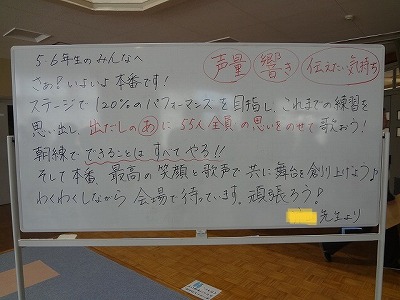 5・6年生のみんなへ
声量 響き 伝えたい気持ち
さぁ!いよいよ本番です!
ステージで120%のパフォーマンスを目指し、これまでの練習を
思い出し、出だしのあに55人全員の思いをのせて歌おう!
朝練でできることはすべてやる!!
そして本番、最高の笑顔と歌声で共に舞台を創り上げよう♪
わくわくしながら会場で待っています。頑張ろう!
先生より